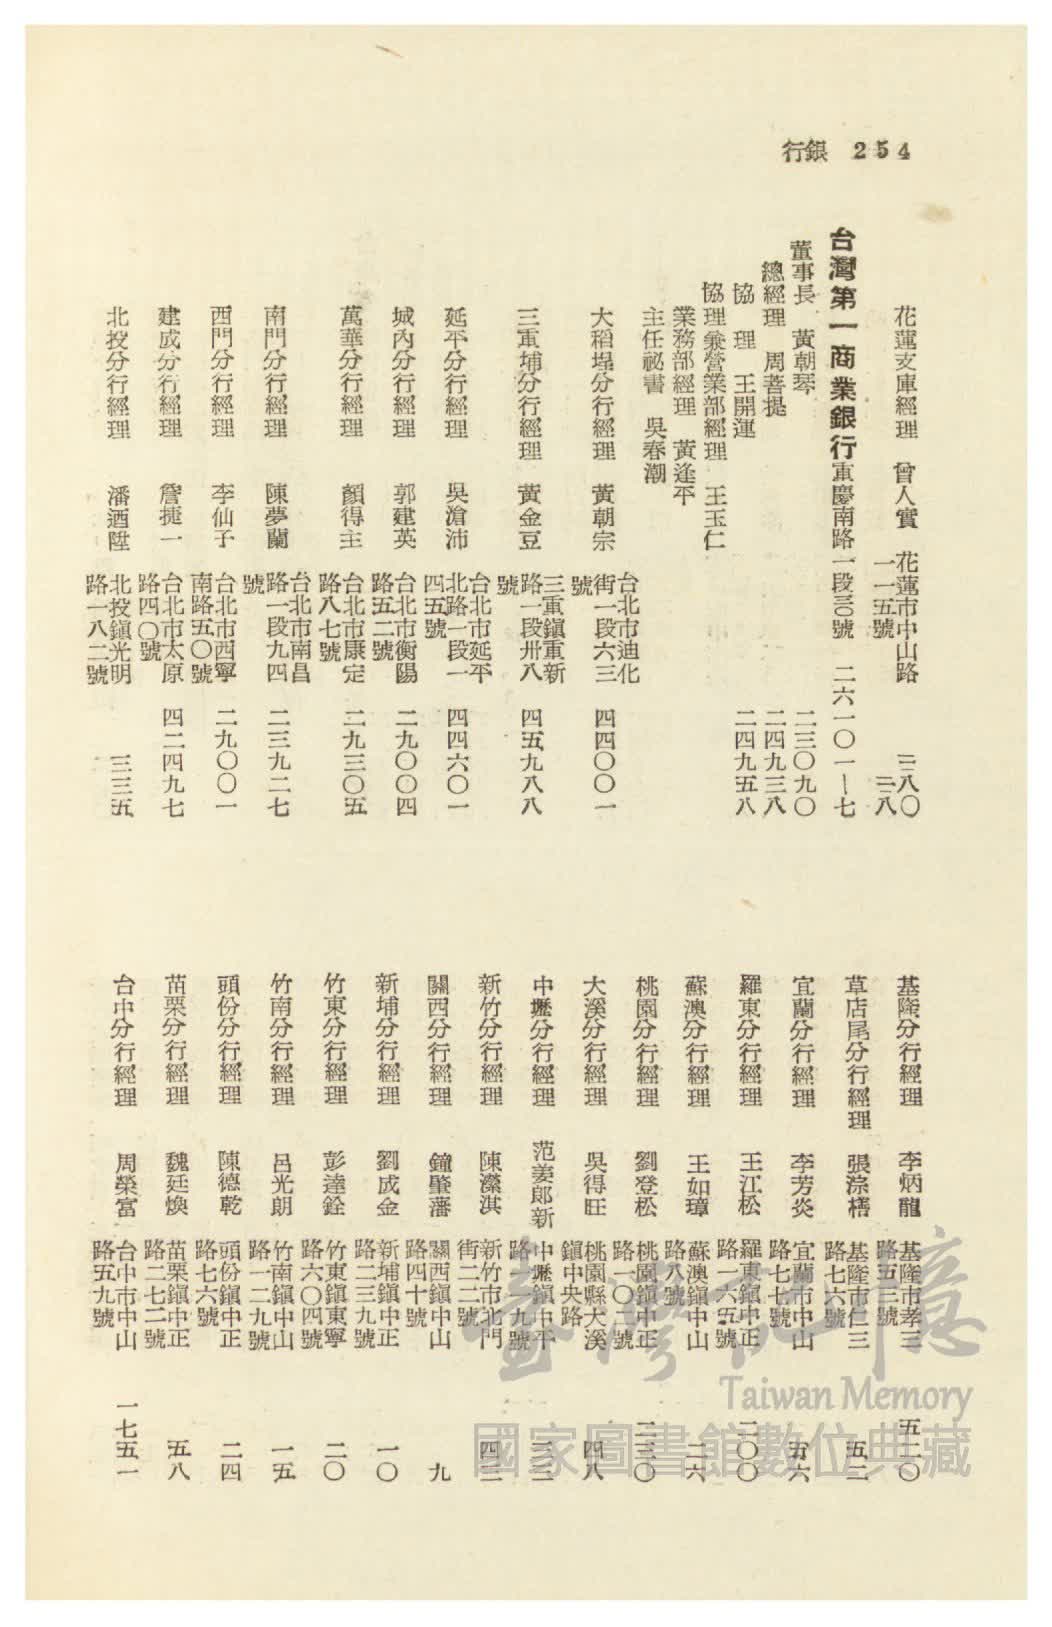 行銀　254
花蓮支庫經理　曾人實　花蓮市中山路一一五號　三八〇　三八
台灣第一商業銀行　重慶南路一段三〇號　二六一〇一—七
董事長　黃朝琴　二三〇九〇
總經理　周菩提　二四九三八
協理　王開運　二四九五八
協理兼營業部經理　王玉仁
業務部經理　黃逢平
主任祕書　吳春潮
大稻埕分行經理　黃朝宗　台北市迪化街一段六三號　四四〇〇一
三重埔分行經理　黃金豆　三重鎮重新路一段卅八號　四五九八八
延平分行經理　吳滄沛　台北市延平北路一段一四五號　四四六〇一
城內分行經理　郭建英　台北市衡陽路五二號　二九〇〇四
萬華分行經理　顏得主　台北市康定路八七號　二九三〇五
南門分行經理　陳夢蘭　台北市南昌路一段九四號　二三九二七
西門分行經理　李仙子　台北市西寧南路五〇號　二九〇〇一
建成分行經理　詹挺一　台北市太原路四〇號　四二四九七
北投分行經理　潘迺陞　北投鎮光明路一八二號　三三五
基隆分行經理　李炳龍　基隆市孝三路五三號　五二〇
草店尾分行經理　張淙楿　基隆市仁三路七六號　五二
宜蘭分行經理　李芳炎　宜蘭市中山路七七號　五六
羅東分行經理　王江松　羅東鎮中正路一六五號　二〇〇
蘇澳分行經理　王如璋　蘇澳鎮中山路八號　二六
桃園分行經理　劉登松　桃園鎮中正路一〇二號　二三〇
大溪分行經理　吳得旺　桃園縣大溪鎮中央路　四八
中壢分行經理　范姜郎新　中壢鎮中平路一九號　三三
新竹分行經理　陳濚淇　新竹市北門街二二號　四二
關西分行經理　鐘肇藩　關西鎮中山路四十號　九
新埔分行經理　劉成金　新埔鎮中正路二三九號　一〇
竹東分行經理　彭達銓　竹東鎮東寧路六〇四號　二〇
竹南分行經理　呂光朗　竹南鎮中山路一二九號　一五
頭份分行經理　陳德乾　頭份鎮中正路七六號　二四
苗栗分行經理　魏廷煥　苗栗鎮中正路二七二號　五八
台中分行經理　周榮富　台中市中山路五九號　一七五一
臺灣記憶
Taiwan Memory
國家圖書館數位典藏